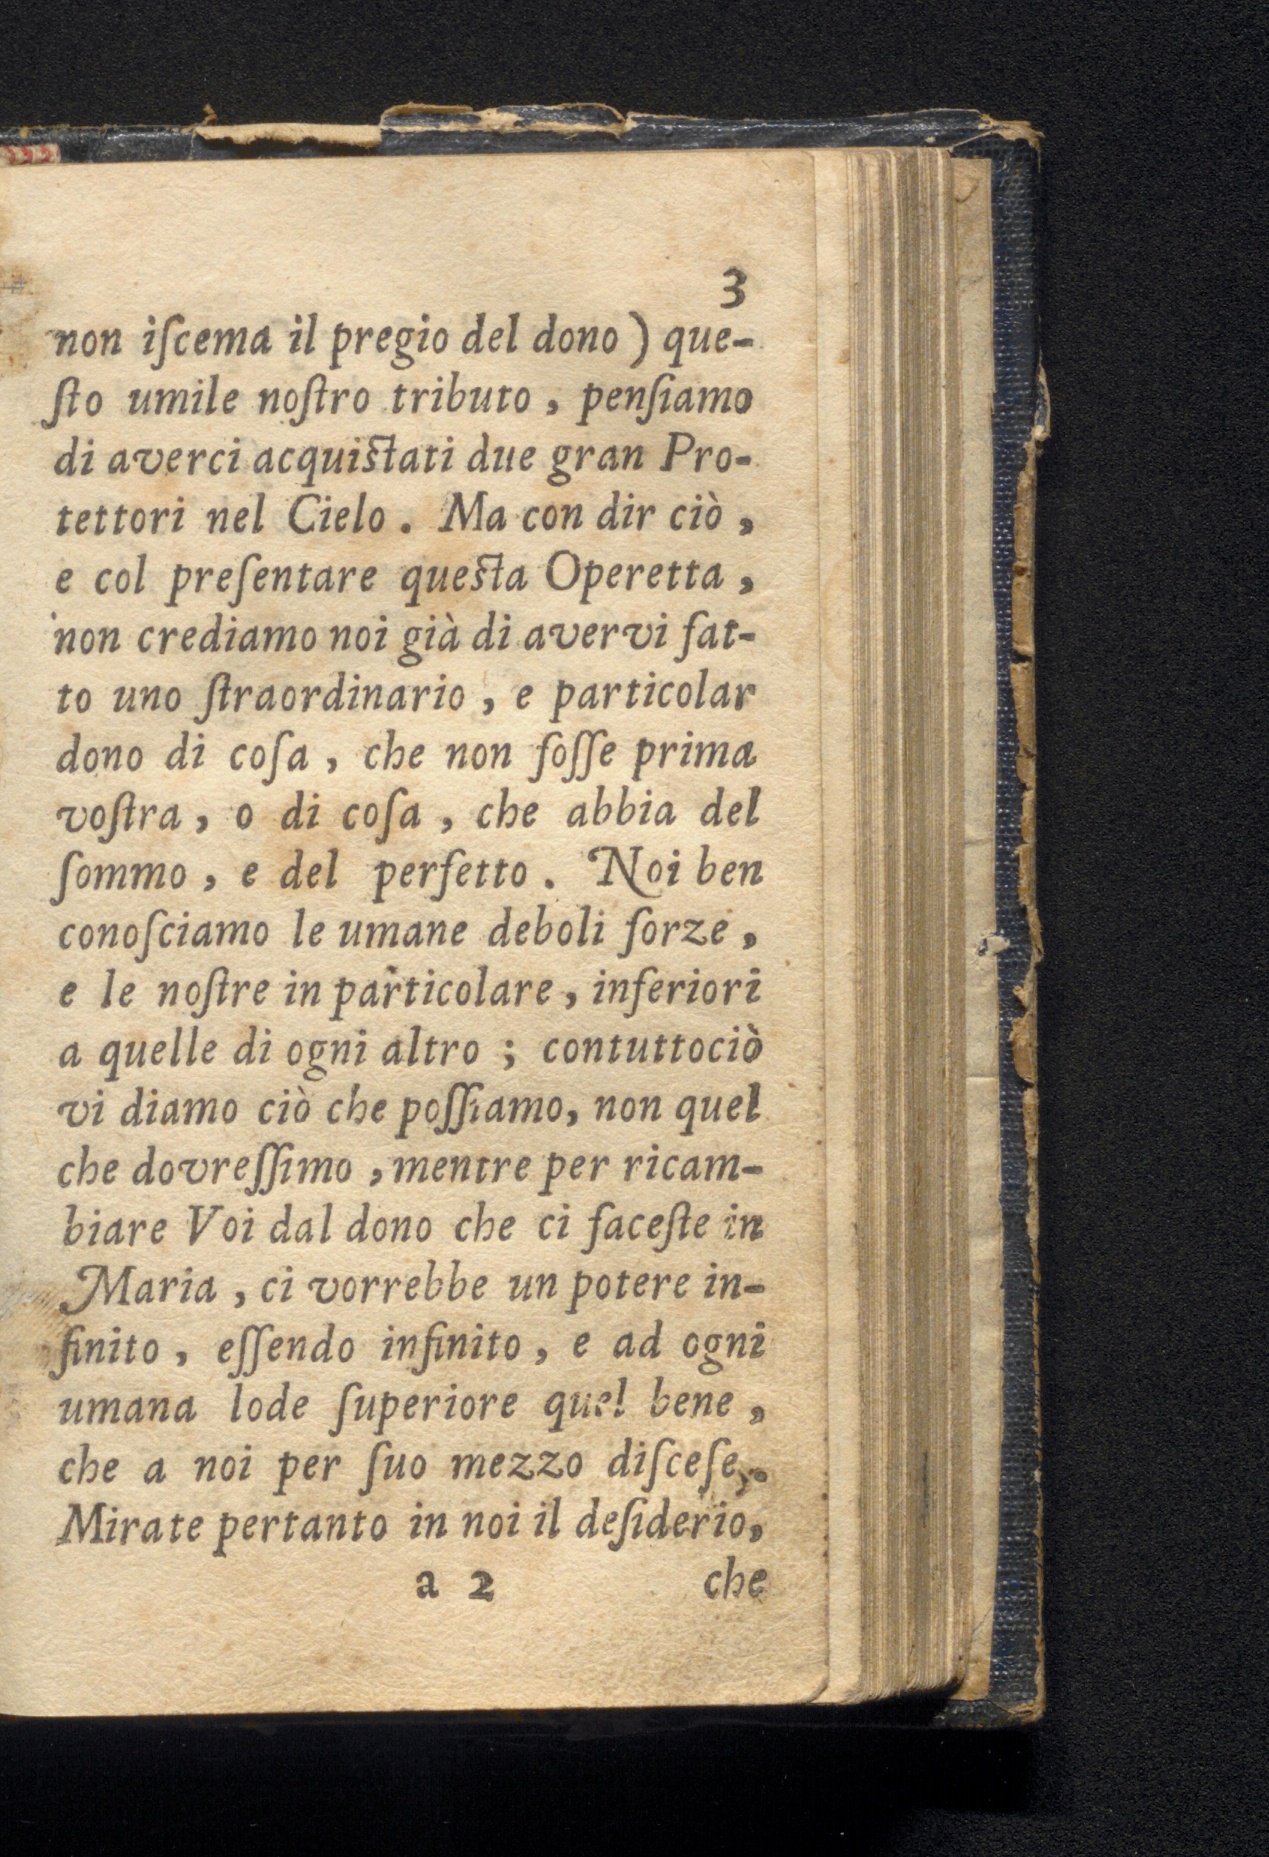 3
non iſcema il pregio del dono ) que-
ſto umile noſtro tributo , penſiamo
di averci acquiſtati due gran Pro-
tettori nel Cielo . Ma con dir ciò ,
e col preſentare queſta Operetta ,
non crediamo noi già di avervi fat-
to uno ſtraordinario , e particolar
dono di coſa , che non foſſe prima
voſtra , o di coſa , che abbia del
ſommo , e del perfetto . Noi ben
conoſciamo le umane deboli forze ,
e le noſtre in particolare , inferiori
a quelle di ogni altro ; contuttociò
vi diamo ciò che poſſiamo, non quel
che dovreſſimo , mentre per ricam-
biare Voi dal dono che ci faceſte in
Maria , ci vorrebbe un potere in-
finito , eſſendo infinito , e ad ogni
umana lode ſuperiore quel bene ,
che a noi per ſuo mezzo diſceſe .
Mirate pertanto in noi il deſiderio,
a 2 che